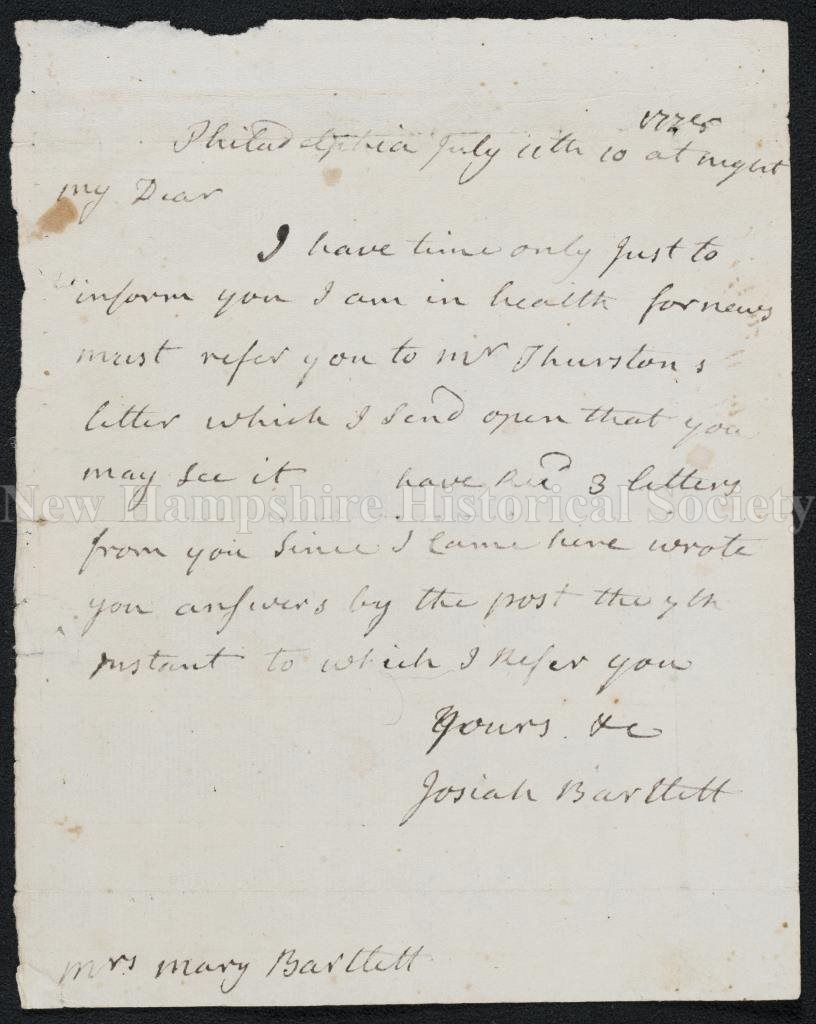 Philadelphia July 11th 10 at night
my Dear
I have time only Just to
inform you I am in health for news
must refer you to mr Thurstons
letter which I Send open that you
may See it have Recd 3 letters
New Hampshire Historical Society
from you Since I Came here wrote
you answers by the post the 7th
Instant to which I Refer you
Yours &c
Josiah Bartlett
mrs mary Bartlett